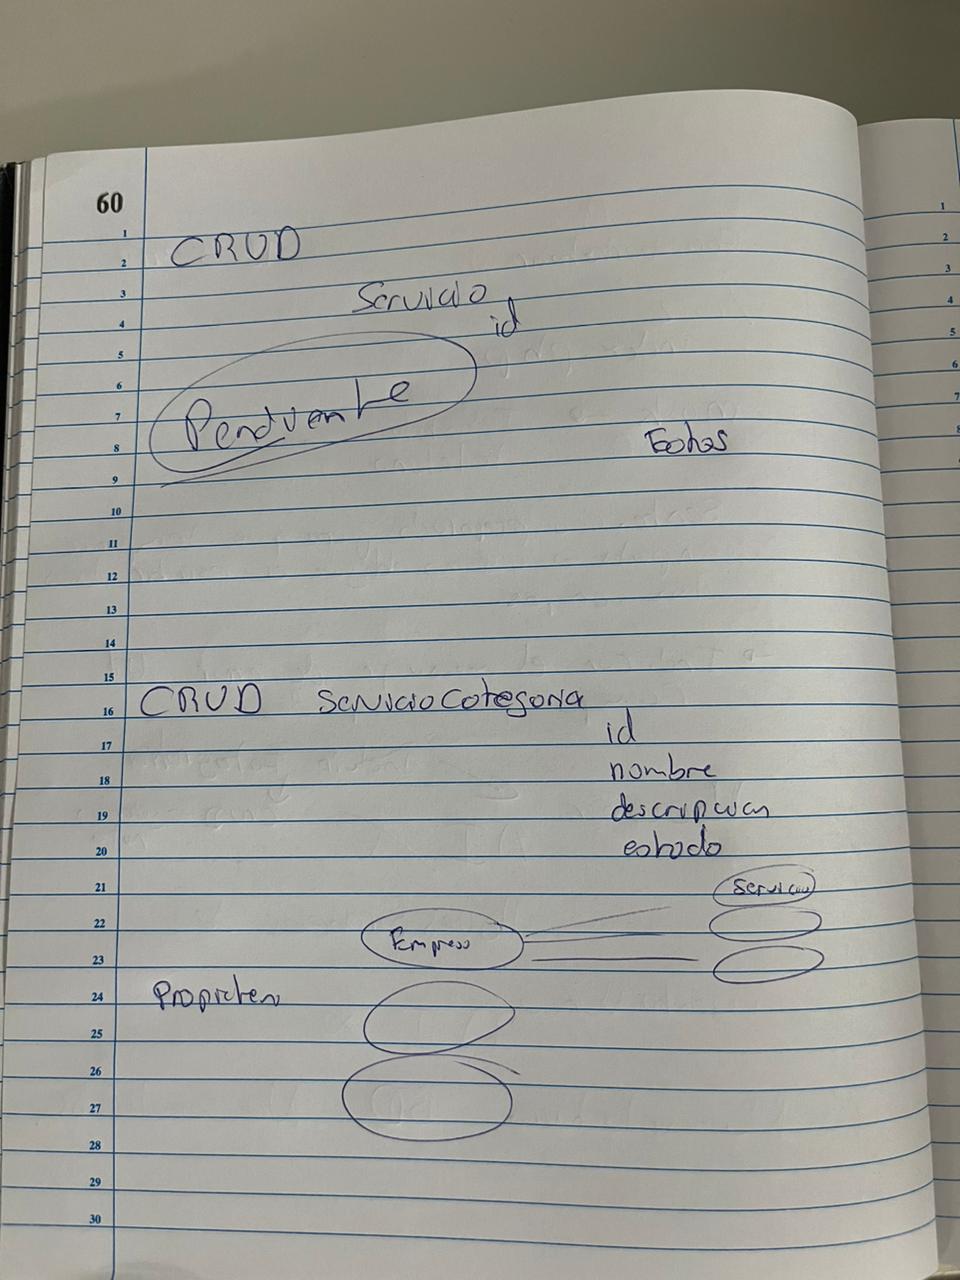 60
1
CRUD
2
3 Servicio
4 id
5
6
7 Pendiente
8 Fotos
9
10
11
12
13
14
15
16 CRUD Servicio Categoria
17 id
18 nombre
19 descripcion
20 estado
21 Servicio
22
23 Empresa
24
25
26
27
28
29
30
1
2
3
4
5
6
7